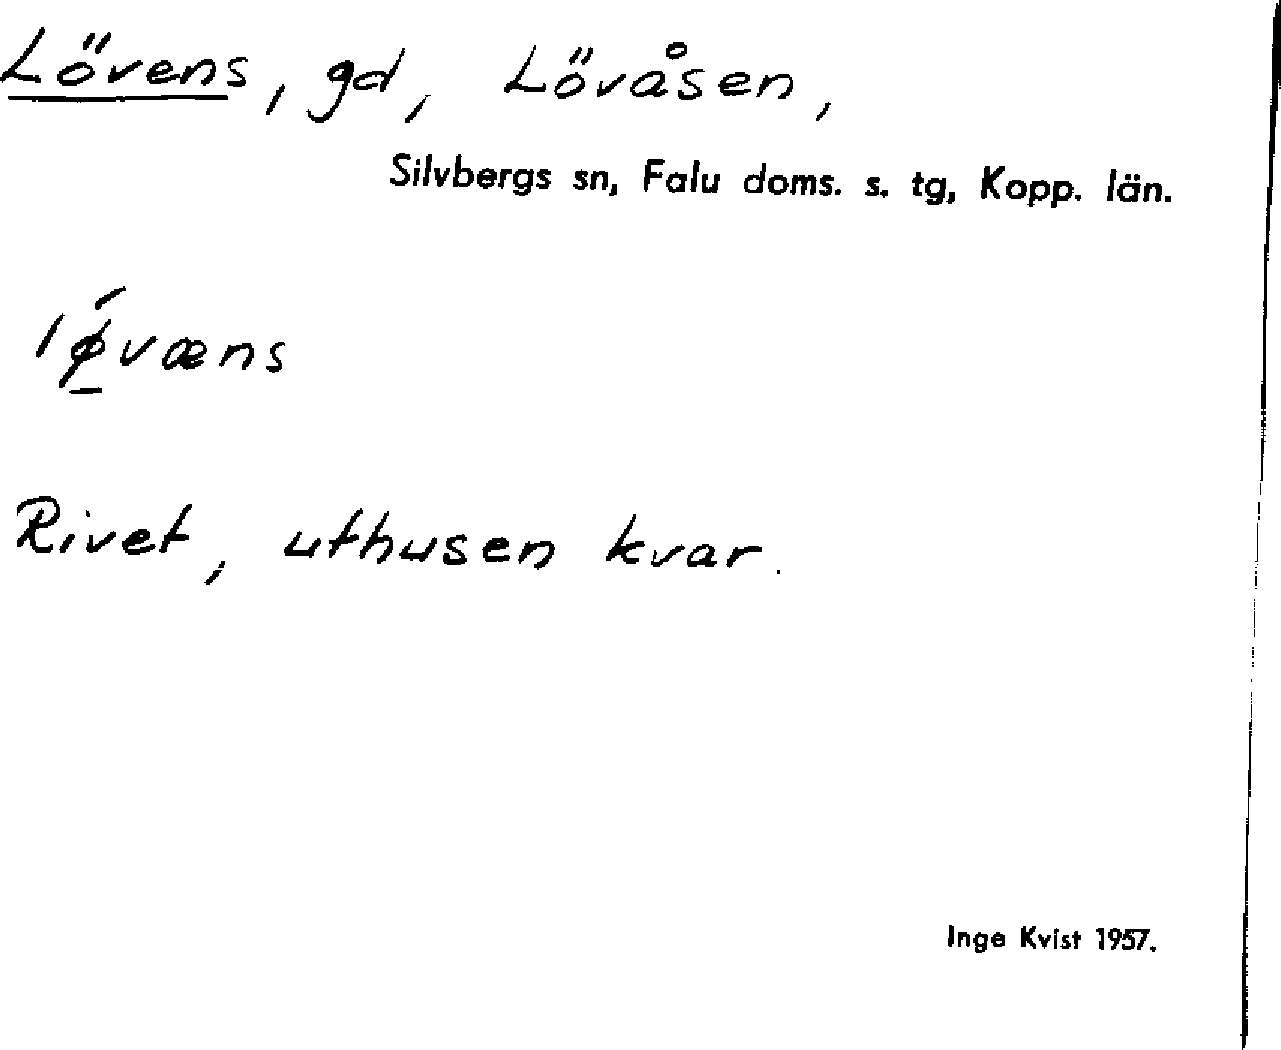 Lövens, gd, Lövåsen,
Silvbergs sn, Falu doms. s. tg, Kopp. län.
lǿ̱væns
Rivet, uthusen kvar.
Inge Kvist 1957.